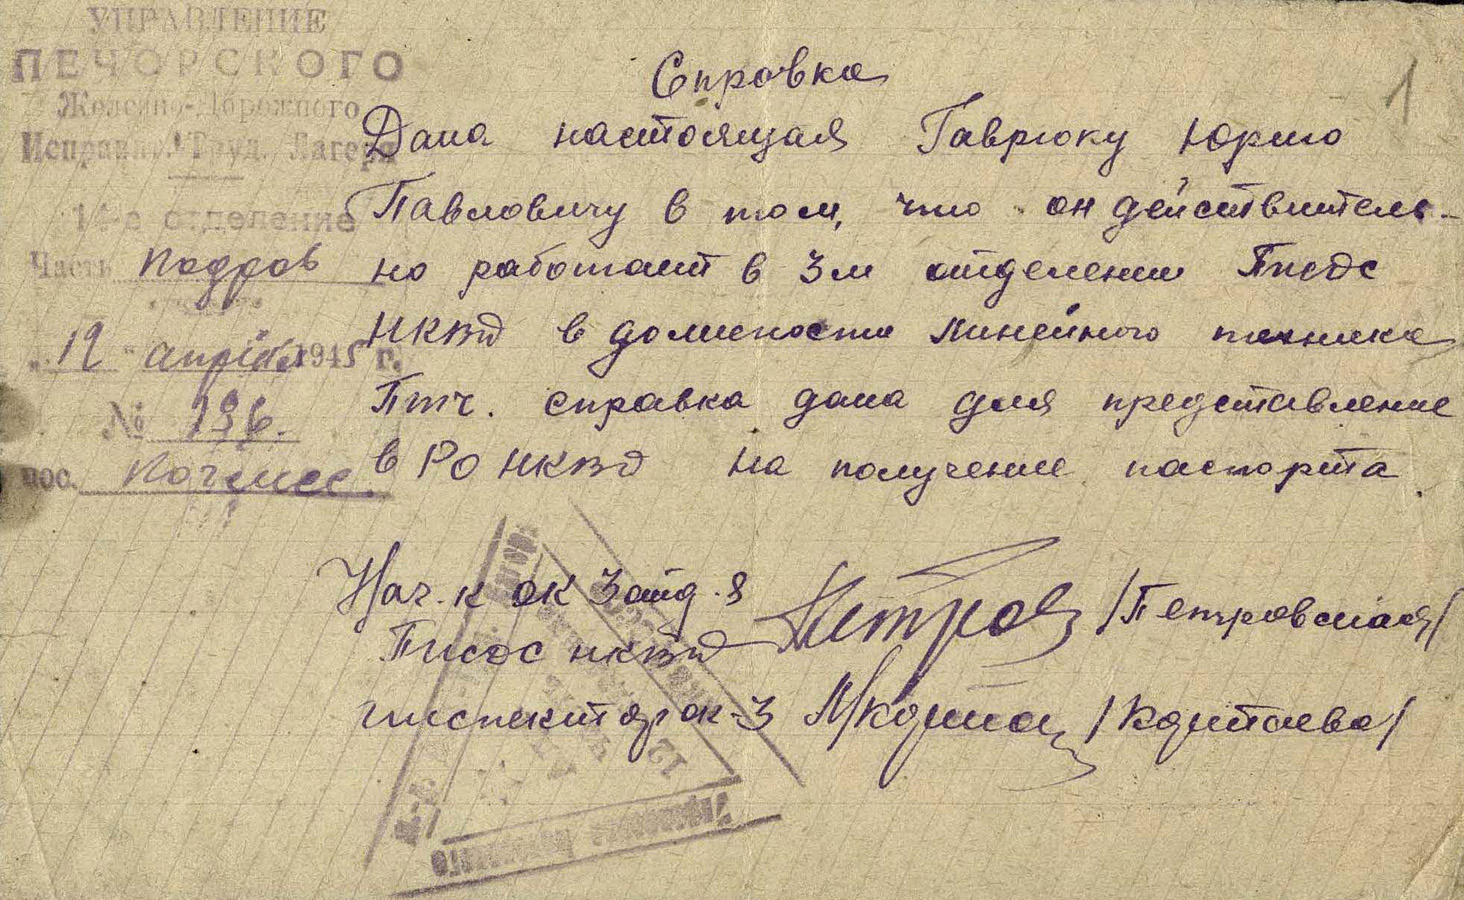 УПРАВЛЕНИЕ
ПЕЧОРСКОГО
Железно-Дорожного
Исправит. Труд. Лагеря
14-е отделение
Часть кадров
"12" апреля 1945 г.
№ 196.
пос. Кочмес
1
Справка
Дана настоящая Гаврюку Юрию
Павловичу в том, что он действитель-
но работает в 3м отделении
НКВД в должности линейного техника
Птч. справка дана для представление
в РО НКВД на получение паспорта
Нач-к ОК 3 отд.
НКВД /Петровская/
инспектор ок-3 /Корнаева/
12
Управление Печорского